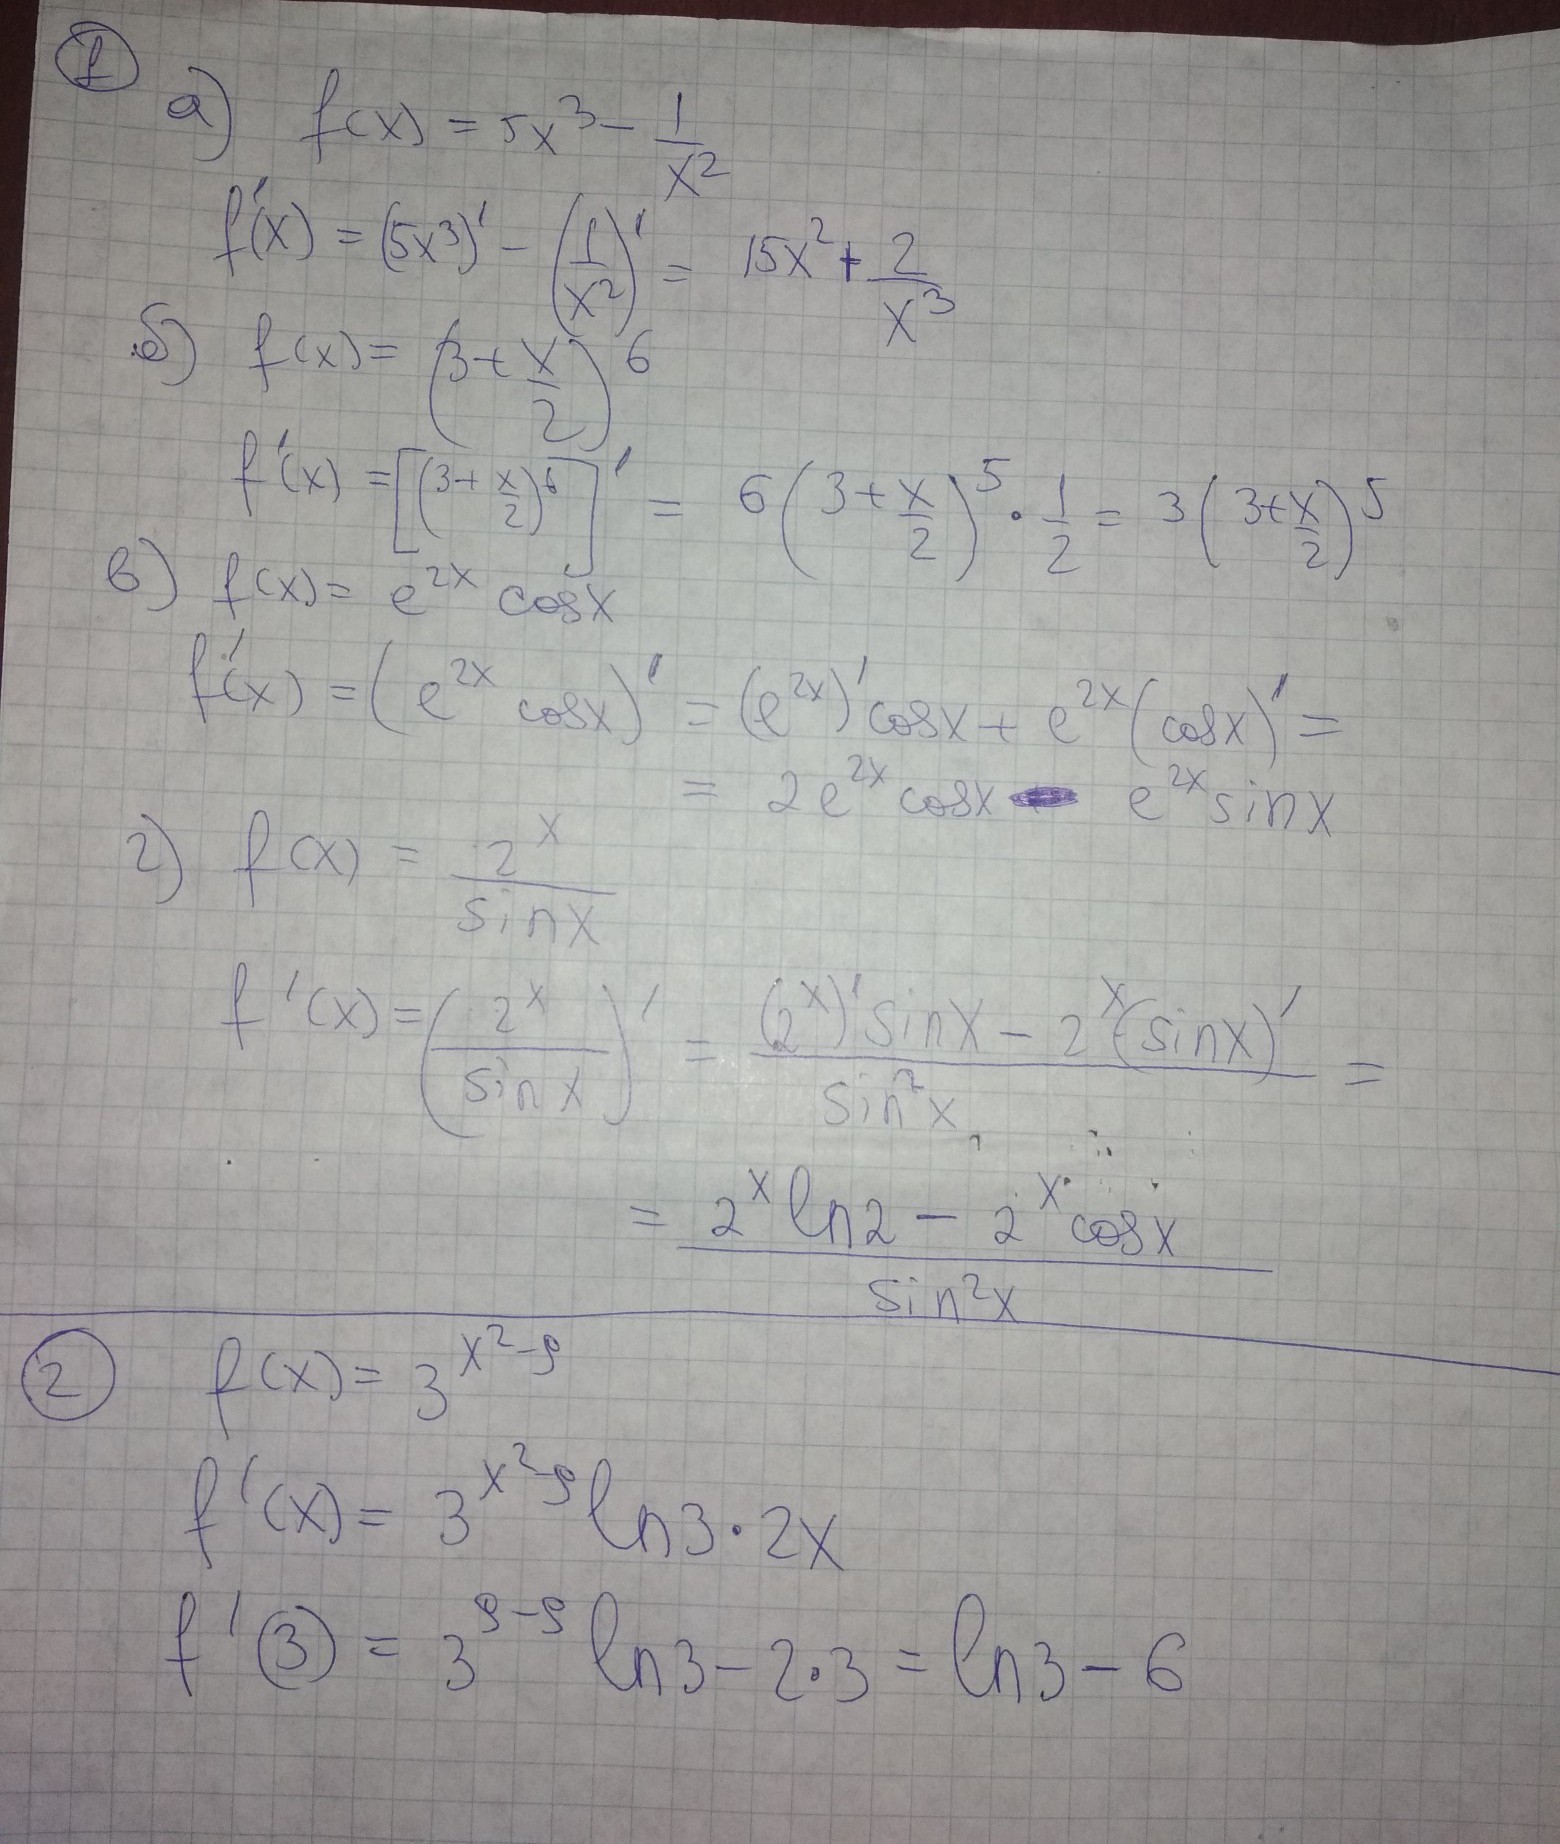 1
а) f(x) = 5x³ − 1/x²
f'(x) = (5x³)' − (1/x²)' = 15x² + 2/x³
б) f(x) = (3+x/2)⁶
f'(x) = [(3+x/2)⁶]' = 6(3+x/2)⁵ · 1/2 = 3(3+x/2)⁵
в) f(x) = e^(2x) cosx
f'(x) = (e^(2x) cosx)' = (e^(2x))' cosx + e^(2x) (cosx)' =
= 2e^(2x) cosx − e^(2x) sinx
г) f(x) = 2^x / sinx
f'(x) = (2^x / sinx)' = ((2^x)' sinx − 2^x (sinx)') / sin²x =
= (2^x ln2 − 2^x cosx) / sin²x
2 f(x) = 3^(x²−9)
f'(x) = 3^(x²−9) ln3 · 2x
f'(3) = 3^(9−9) ln3 − 2·3 = ln3 − 6